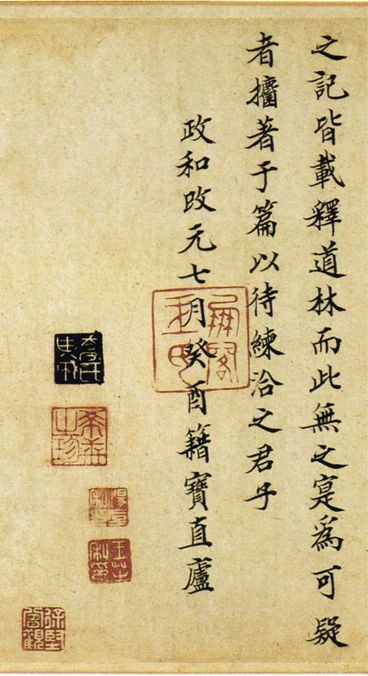 之記皆載釋道林而此無之寔爲可疑
者攟著于篇以待練洽之君子
政和改元七月癸酉籍寶直廬